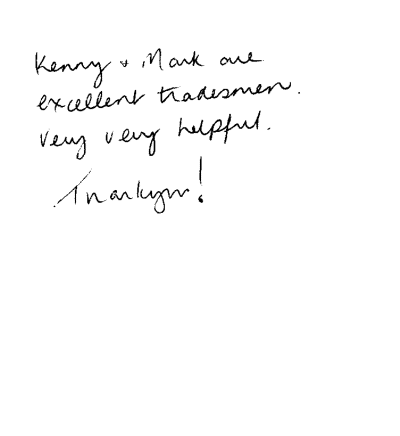 Kenny + Mark are
excellent tradesmen.
Very very helpful.
Thankyou!